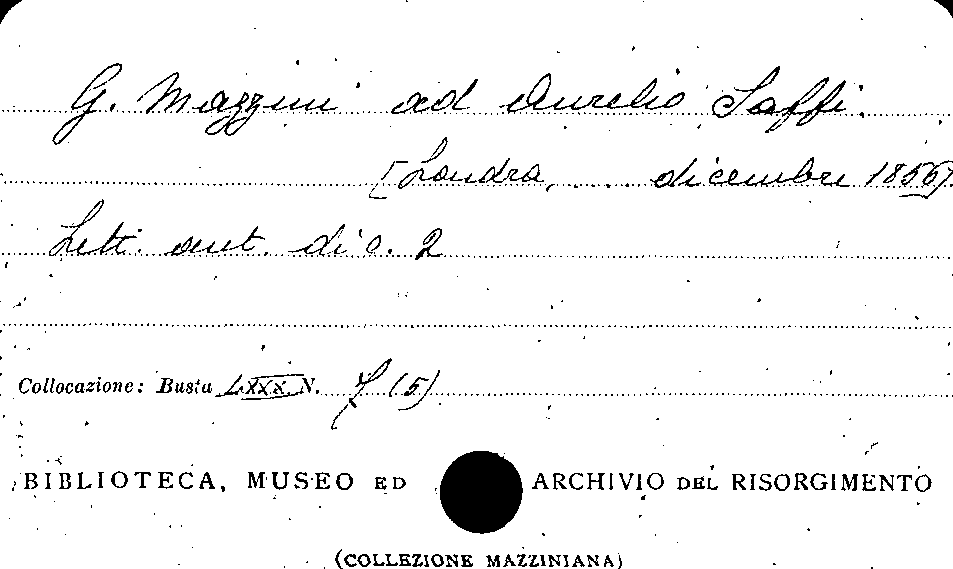 G. Mazzini ad Aurelio Saffi.
[Londra, ... dicembre 1856]
Lett. aut. di c. 2
Collocazione: Busta LXXX N. 7 (5)
BIBLIOTECA, MUSEO ED ARCHIVIO DEL RISORGIMENTO
(COLLEZIONE MAZZINIANA)